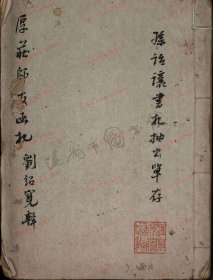 孫詒讓書札抽出單存
厚莊師友函札 劉紹寬輯